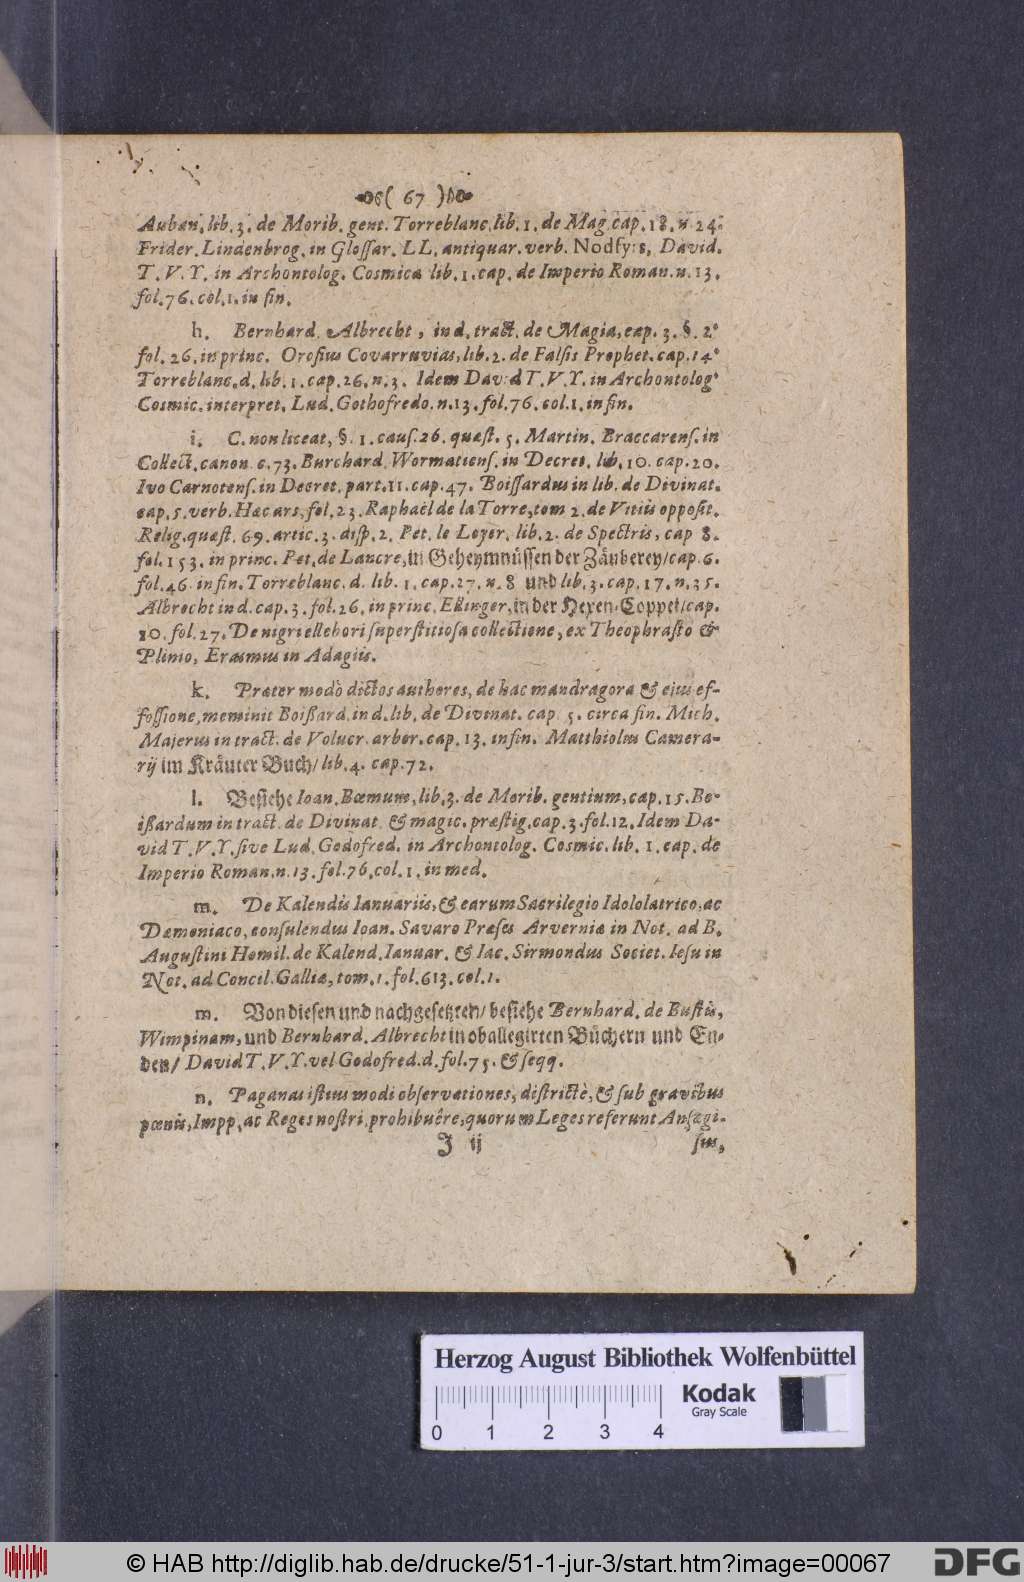 ( 67 )
Auban. lib. 3. de Morib. gent. Torreblanc. lib. 1. de Mag. cap. 18. n. 24.
Frider. Lindenbrog. in Glossar. LL. antiquar. verb. Nodfyrs, David.
T. V. Y. in Archontolog. Cosmica lib. 1. cap. de Imperio Roman. n. 13.
fol. 76. col. 1. in fin.
h. Bernhard. Albrecht, in d. tract. de Magia, cap. 3. §. 2.
fol. 26. in princ. Orosius Covarruvias, lib. 2. de Falsis Prophet. cap. 14.
Torreblanc. d. lib. 1. cap. 26. n. 3. Idem David T. V. Y. in Archontolog.
Cosmic. interpret. Lud. Gothofredo. n. 13. fol. 76. col. 1. in fin.
i. C. non liceat, §. 1. caus. 26. quæst. 5. Martin. Braccarens. in
Collect. canon. c. 73. Burchard. Wormatiens. in Decret. lib. 10. cap. 20.
Ivo Carnotens. in Decret. part. 11. cap. 47. Boissardus in lib. de Divinat.
cap. 5. verb. Hac ars, fol. 23. Raphaël de la Torre, tom 2. de Vitiis opposit.
Relig. quæst. 69. artic. 3. disp. 2. Pet. le Loyer. lib. 2. de Spectris, cap 8.
fol. 153. in princ. Pet. de Lancre, in Geheymnüssen der Zäuberey/ cap. 6.
fol. 46. in fin. Torreblanc. d. lib. 1. cap. 27. n. 8 und lib. 3. cap. 17. n. 35.
Albrecht in d. cap. 3. fol. 26. in princ. Ellinger, in der Hexen-Coppel/ cap.
10. fol. 27. De nigri ellebori superstitiosa collectione, ex Theophrasto &
Plinio, Erasmus in Adagiis.
k. Præter modò dictos authores, de hac mandragora & ejus ef-
fossione, meminit Boißard. in d. lib. de Divinat. cap. 5. circa fin. Mich.
Majerus in tract. de Volucr. arbor. cap. 13. in fin. Matthiolus Camera-
rij im Kräuter Buch/ lib. 4. cap. 72.
l. Besiehe Ioan. Bœmum, lib. 3. de Morib. gentium, cap. 15. Bo-
ißardum in tract. de Divinat. & magic. præstig. cap. 3. fol. 12. Idem Da-
vid T. V. Y. sive Lud. Godofred. in Archontolog. Cosmic. lib. 1. cap. de
Imperio Roman. n. 13. fol. 76. col. 1. in med.
m. De Kalendis Ianuariis, & earum Sacrilegio Idololatrico, ac
Dæmoniaco, consulendus Ioan. Savaro Præses Arverniæ in Not. ad B.
Augustini Homil. de Kalend. Ianuar. & Iac. Sirmondus Societ. Iesu in
Not. ad Concil. Galliæ, tom. 1. fol. 613. col. 1.
m. Von diesen und nachgesetzten/ besiehe Bernhard. de Bustis,
Wimpinam, und Bernhard. Albrecht in oballegirten Büchern und En-
den/ David T. V. Y. vel Godofred. d. fol. 75. & seqq.
n. Paganas istius modi observationes, districtè, & sub gravibus
pœnis, Impp. ac Reges nostri, prohibuêre, quorum Leges referunt Ansegi-
J ij
sus,
Herzog August Bibliothek Wolfenbüttel
Kodak
Gray Scale
0 1 2 3 4
© HAB http://diglib.hab.de/drucke/51-1-jur-3/start.htm?image=00067
DFG